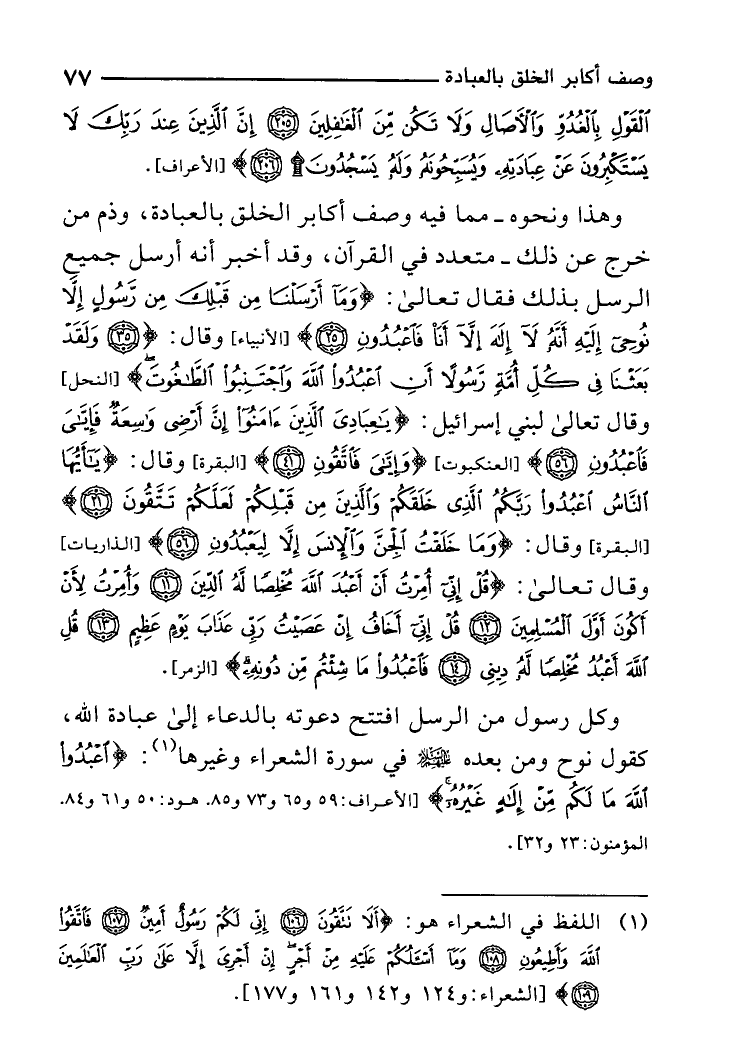 وصف أكابر الخلق بالعبادة ٧٧
ٱلْقَوْلِ بِٱلْغُدُوِّ وَٱلْـَٔاصَالِ وَلَا تَكُن مِّنَ ٱلْغَـٰفِلِينَ ﴿٢٠٥﴾ إِنَّ ٱلَّذِينَ عِندَ رَبِّكَ لَا
يَسْتَكْبِرُونَ عَنْ عِبَادَتِهِۦ وَيُسَبِّحُونَهُۥ وَلَهُۥ يَسْجُدُونَ ۩ ﴿٢٠٦﴾﴾ [الأعراف].
وهذا ونحوه ـ مما فيه وصف أكابر الخلق بالعبادة، وذم من
خرج عن ذلك ـ متعدد في القرآن، وقد أخبر أنه أرسل جميع
الرسل بذلك فقال تعالىٰ: ﴿وَمَآ أَرْسَلْنَا مِن قَبْلِكَ مِن رَّسُولٍ إِلَّا
نُوحِىٓ إِلَيْهِ أَنَّهُۥ لَآ إِلَـٰهَ إِلَّآ أَنَا۠ فَٱعْبُدُونِ ﴿٢٥﴾﴾ [الأنبياء] وقال: ﴿﴿٣٥﴾ وَلَقَدْ
بَعَثْنَا فِى كُلِّ أُمَّةٍ رَّسُولًا أَنِ ٱعْبُدُوا۟ ٱللَّهَ وَٱجْتَنِبُوا۟ ٱلطَّـٰغُوتَ ۖ﴾ [النحل]
وقال تعالىٰ لبني إسرائيل: ﴿يَـٰعِبَادِىَ ٱلَّذِينَ ءَامَنُوٓا۟ إِنَّ أَرْضِى وَٰسِعَةٌ فَإِيَّـٰىَ
فَٱعْبُدُونِ ﴿٥٦﴾﴾ [العنكبوت] ﴿وَإِيَّـٰىَ فَٱتَّقُونِ ﴿٤١﴾﴾ [البقرة] وقال: ﴿يَـٰٓأَيُّهَا
ٱلنَّاسُ ٱعْبُدُوا۟ رَبَّكُمُ ٱلَّذِى خَلَقَكُمْ وَٱلَّذِينَ مِن قَبْلِكُمْ لَعَلَّكُمْ تَتَّقُونَ ﴿٢١﴾﴾
[البقرة] وقال: ﴿وَمَا خَلَقْتُ ٱلْجِنَّ وَٱلْإِنسَ إِلَّا لِيَعْبُدُونِ ﴿٥٦﴾﴾ [الذاريات]
وقال تعالىٰ: ﴿قُلْ إِنِّىٓ أُمِرْتُ أَنْ أَعْبُدَ ٱللَّهَ مُخْلِصًا لَّهُ ٱلدِّينَ ﴿١١﴾ وَأُمِرْتُ لِأَنْ
أَكُونَ أَوَّلَ ٱلْمُسْلِمِينَ ﴿١٢﴾ قُلْ إِنِّىٓ أَخَافُ إِنْ عَصَيْتُ رَبِّى عَذَابَ يَوْمٍ عَظِيمٍ ﴿١٣﴾ قُلِ
ٱللَّهَ أَعْبُدُ مُخْلِصًا لَّهُۥ دِينِى ﴿١٤﴾ فَٱعْبُدُوا۟ مَا شِئْتُم مِّن دُونِهِۦ ۗ﴾ [الزمر].
وكل رسول من الرسل افتتح دعوته بالدعاء إلىٰ عبادة الله،
كقول نوح ومن بعده عليهم السلام في سورة الشعراء وغيرها(١): ﴿ٱعْبُدُوا۟
ٱللَّهَ مَا لَكُم مِّنْ إِلَـٰهٍ غَيْرُهُۥٓ ۚ﴾ [الأعراف: ٥٩ و٦٥ و٧٣ و٨٥. هود: ٥٠ و٦١ و٨٤.
المؤمنون: ٢٣ و٣٢].
(١) اللفظ في الشعراء هو: ﴿أَلَا تَتَّقُونَ ﴿١٠٦﴾ إِنِّى لَكُمْ رَسُولٌ أَمِينٌ ﴿١٠٧﴾ فَٱتَّقُوا۟
ٱللَّهَ وَأَطِيعُونِ ﴿١٠٨﴾ وَمَآ أَسْـَٔلُكُمْ عَلَيْهِ مِنْ أَجْرٍ ۖ إِنْ أَجْرِىَ إِلَّا عَلَىٰ رَبِّ ٱلْعَـٰلَمِينَ
﴿١٠٩﴾﴾ [الشعراء: و١٢٤ و١٤٢ و١٦١ و١٧٧].